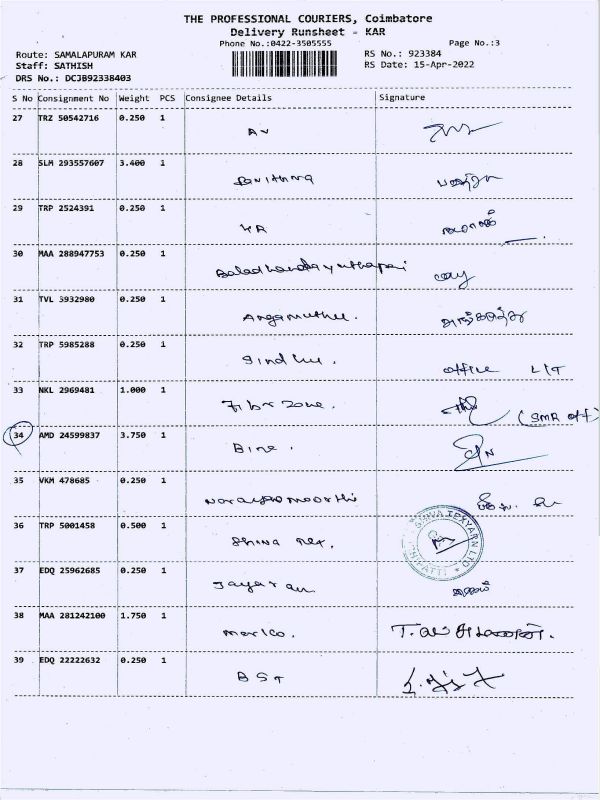 THE PROFESSIONAL COURIERS, Coimbatore
Delivery Runsheet - KAR
Phone No.:0422-3505555
Page No.:3
Route: SAMALAPURAM KAR
RS No.: 923384
Staff: SATHISH
RS Date: 15-Apr-2022
DRS No.: DCJB92338403
S No Consignment No Weight PCS Consignee Details Signature
27 TRZ 50542716 0.250 1 AV
28 SLM 293557607 3.400 1
29 TRP 2524391 0.250 1 KR
30 MAA 288947753 0.250 1
31 TVL 3932980 0.250 1 Angamuthu.
32 TRP 5985288 0.250 1 Sindhu. office
33 NKL 2969481 1.000 1 Fibr Zone. (SMR off)
34 AMD 24599837 3.750 1 Bine.
35 VKM 478685 0.250 1
36 TRP 5001458 0.500 1 Shiva Tex. SHIVA TEXYARN LTD
37 EDQ 25962685 0.250 1 Jayaram
38 MAA 281242100 1.750 1 Marico.
39 EDQ 22222632 0.250 1 BST